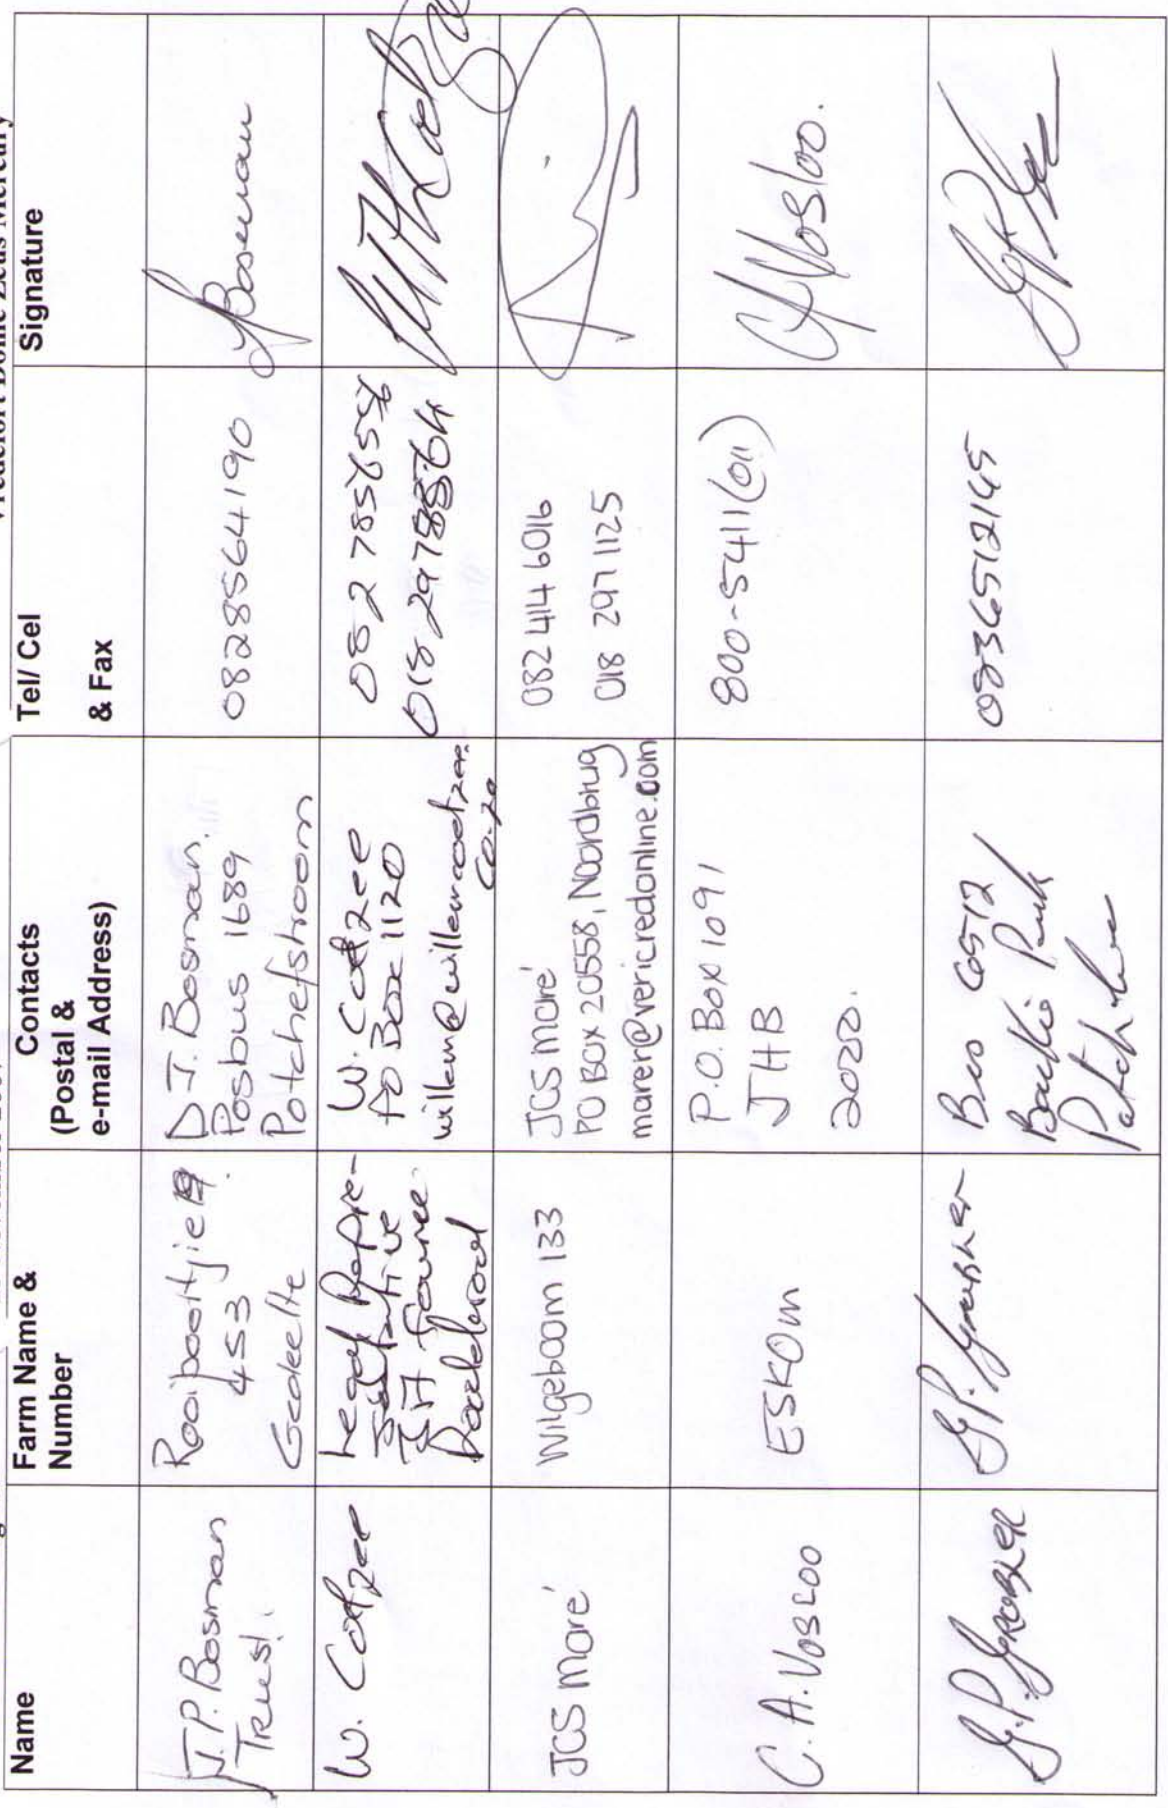 Vredefort Dome Zeus Mercury
Name
Farm Name &
Number
Contacts
(Postal &
e-mail Address)
Tel/ Cel
& Fax
Signature
J.P. Bosman
Trust.
Rooipoortjie
453
Gedeelte
D.J. Bosman.
Posbus 1689
Potchefstroom
0828564190
Bosman
W. Coetzee
Legal Repre-
sentative
PO Box 1120
willem@willemcoetzee.
co.za
018 2978864
JCS Maré
Wilgeboom 133
JCS Maré
PO BOX 20558, Noordbrug
marer@vericredonline.com
082 414 6016
018 297 1125
C.A. VOSLOO
ESKOM
P.O. Box 1091
JHB
2000.
800-5411 (011)
CAVosloo.
G.P. GROBLER
G.P. Grobler
Bus 6572
Park
0836512145